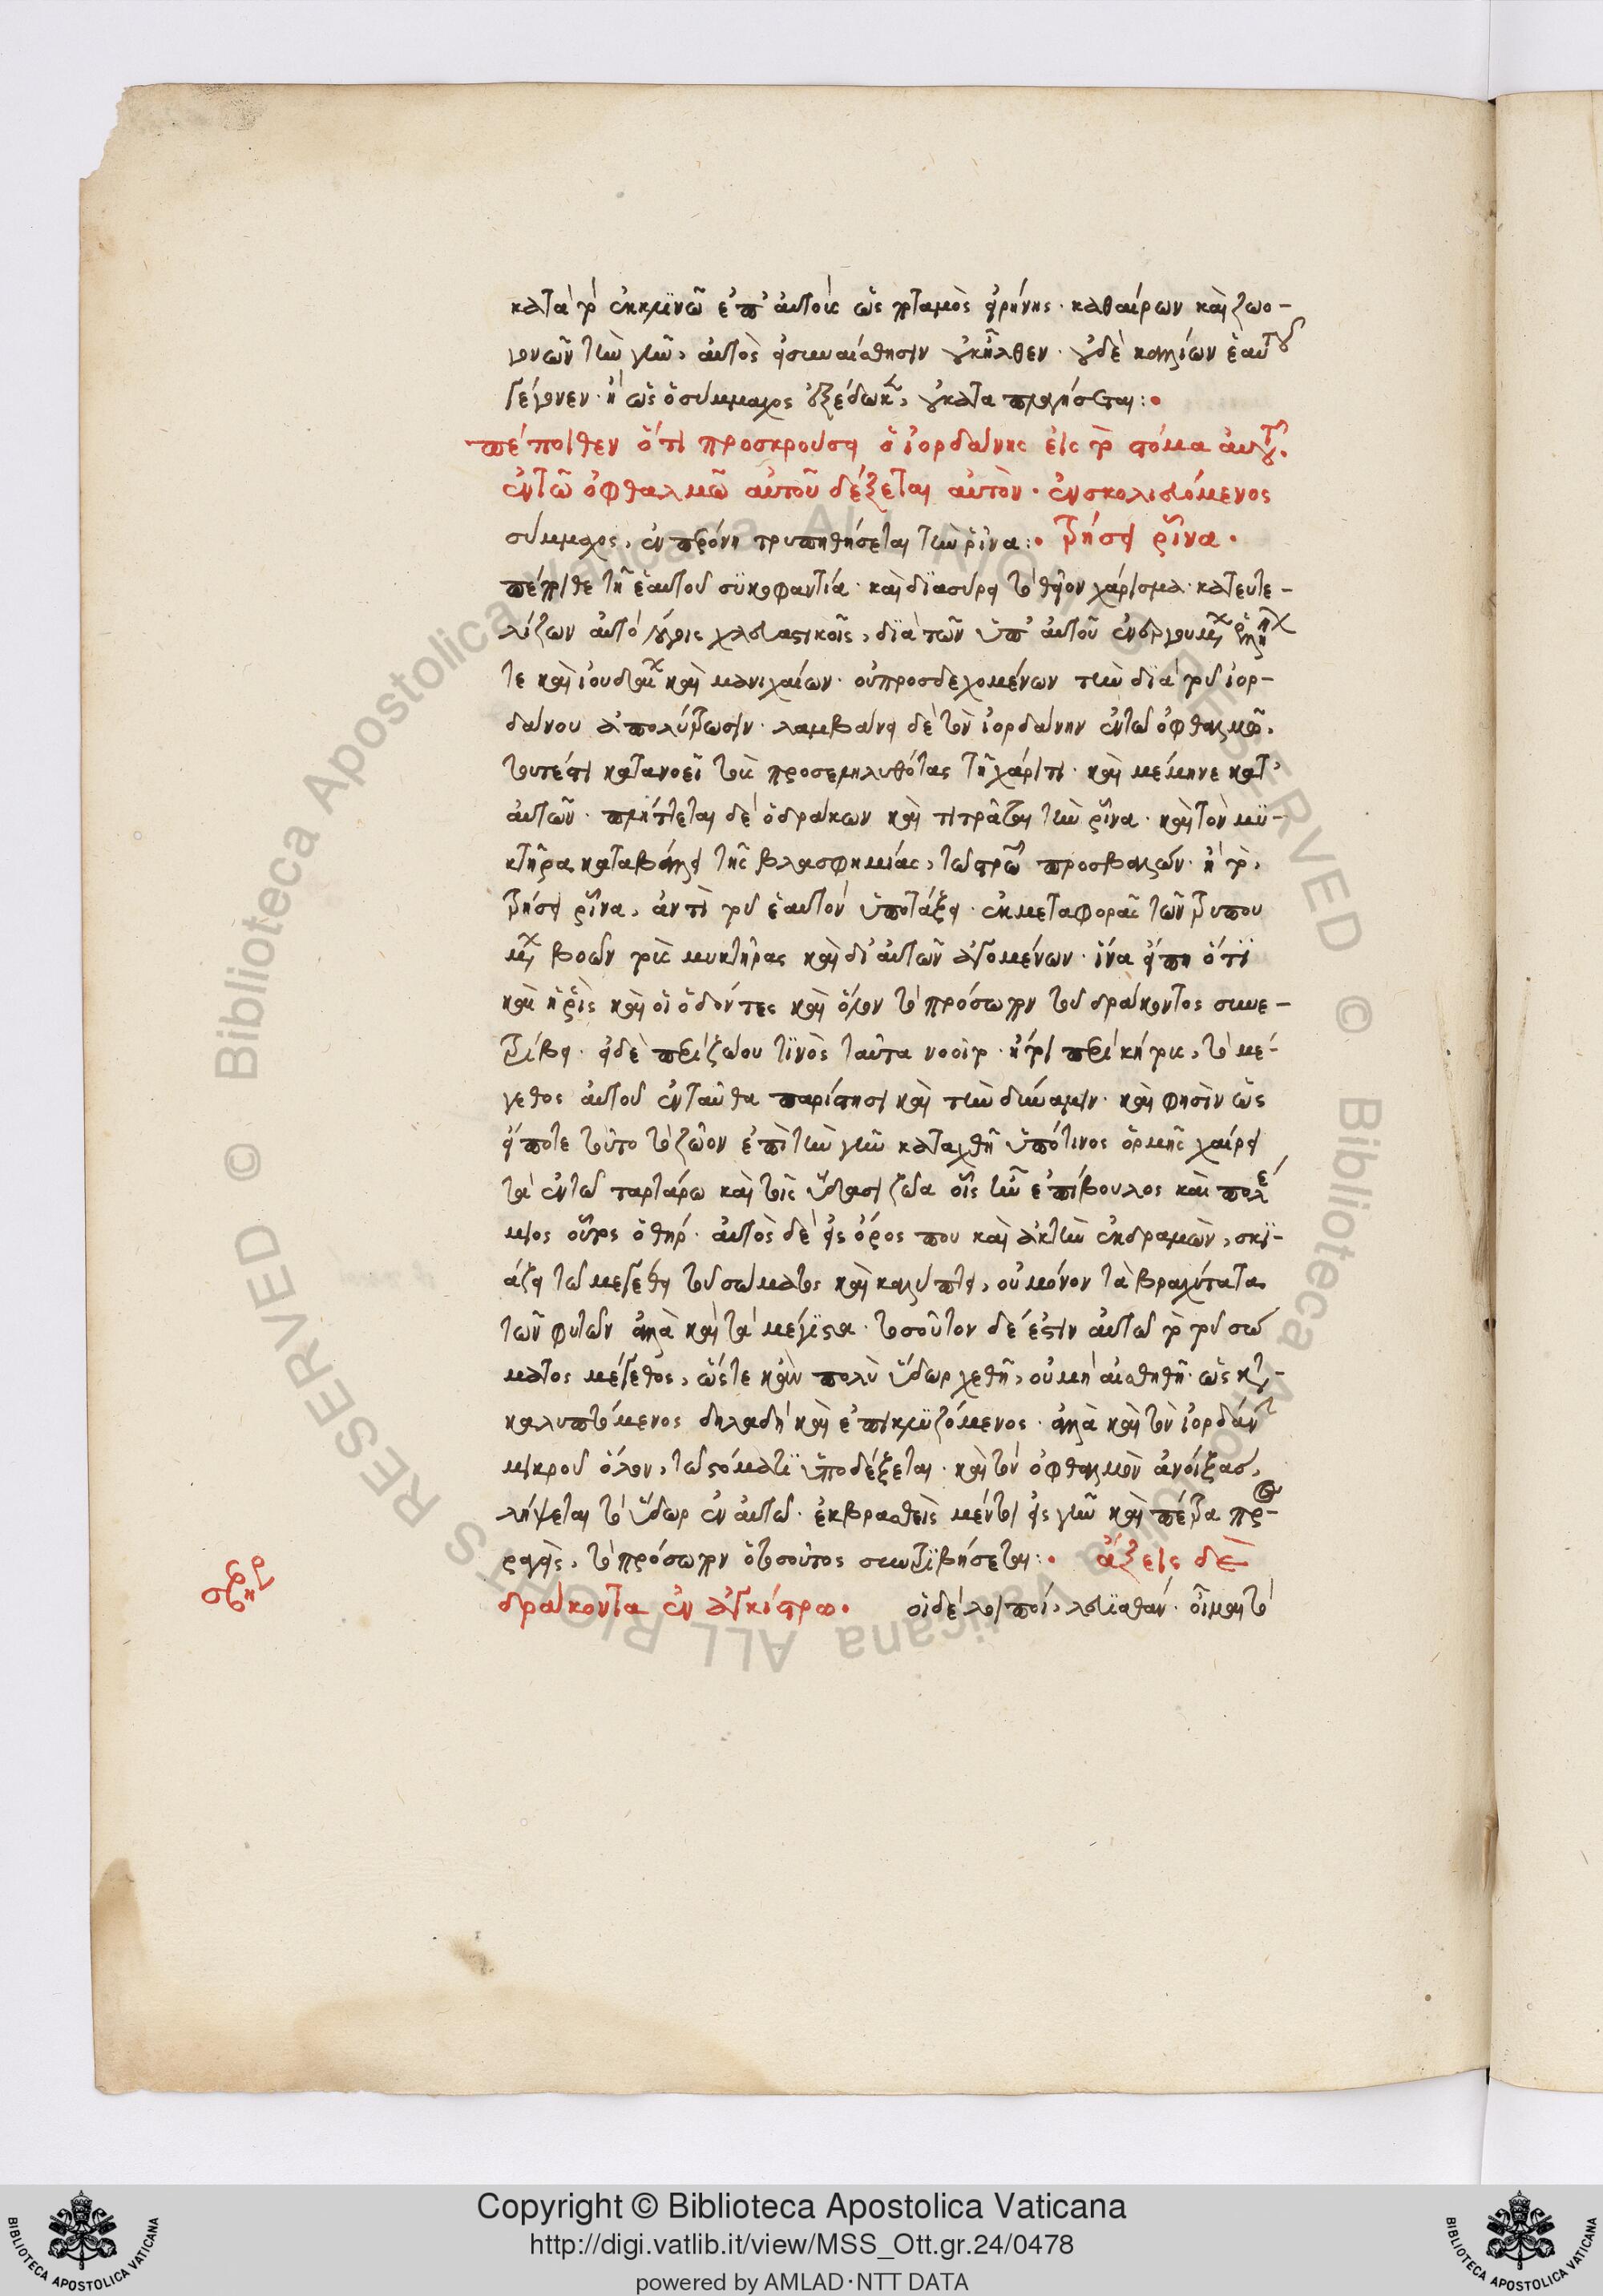 κατὰ τὸ ἐκκλίνω ἐπ' αὐτοὺς ὡς ποταμὸς εἰρήνης· καθαίρων καὶ ζωο-
γονῶν τὴν γῆν, αὐτὸς εἰς συναίσθησιν οὐκ ἦλθεν· οὐδὲ καλλίων ἑαυτοῦ
γέγονεν· ἢ ὡς ὁ σύμμαχος ἐξέδωκεν, οὐ καταπλαγήσεται:
πέποιθεν ὅτι προσκρούσει ὁ ἰορδάνης εἰς τὸ στόμα αὐτοῦ.
ἐν τῷ ὀφθαλμῷ αὐτοῦ δέξεται αὐτὸν· ἐνσκολιευόμενος
σύμμαχος, ἐν περόνῃ τρυπηθήσεται τὴν ῥῖνα: τρήσει ῥῖνα·
πέποιθε τῇ ἑαυτοῦ συκοφαντία· καὶ διασύρει τὸ θεῖον χάρισμα· κατευτε-
λίζων αὐτὸ λόγοις χλευαστικοῖς, διὰ τῶν ὑπ' αὐτοῦ ἐνεργουμένων
τε καὶ ἰουδαίων καὶ μανιχαίων· οὐ προσδεχομένων τὴν διὰ τοῦ ἰορ-
δάνου ἀπολύτρωσιν· λαμβάνει δὲ τὸν ἰορδάνην ἐν τῷ ὀφθαλμῷ,
τουτέστι κατανοεῖ τοὺς προσεληλυθότας τῇ χάριτι· καὶ μέμηνε κατ'
αὐτῶν· πλήττεται δὲ ὁ δράκων καὶ τιτρᾶται τὴν ῥῖνα· καὶ τὸν μυ-
κτῆρα καταβάλλει τῆς βλασφημίας, τῷ σταυρῷ προσβαλών· ἢ τὸ,
τρήσει ῥῖνα, ἀντὶ τοῦ ἑαυτὸν ὑποτάξει· ἐκ μεταφορᾶς τῶν τρυπου
μένων βοῶν τοὺς μυκτῆρας καὶ δι' αὐτῶν ἀγομένων· ἵνα εἴπῃ ὅτι
καὶ ἡ ῥὶς καὶ οἱ ὀδόντες καὶ ὅλον τὸ πρόσωπον τοῦ δράκοντος συνε-
τρίβη· εἰ δὲ περὶ ζώου τινὸς ταῦτα νοοῖτο· ἤτοι περὶ κήτους, τὸ μέ-
γεθος αὐτοῦ ἐνταῦθα παρίστησι καὶ τὴν δύναμιν· καὶ φησὶν ὡς
εἴποτε τοῦτο τὸ ζῶον ἐπὶ τὴν γῆν καταχθῇ ὑπό τινος ὁρμῆς χαίρει
τὰ ἐν τῷ ταρτάρω καὶ τοῖς ὕδασι ζῶα οἷς ἦν ἐπίβουλος καὶ πολέ
μιος οὗτος ὁ θήρ· αὐτὸς δὲ εἰς ὄρος που καὶ ἀκτὴν ἐκδραμὼν, σκι-
άζει τῷ μεγέθει τοῦ σώματος καὶ καλύπτει, οὐ μόνον τὰ βραχύτατα
τῶν φυτῶν ἀλλὰ καὶ τὰ μέγιστα· τοσοῦτον δέ ἐστιν αὐτῷ τὸ τοῦ σώ
ματος μέγεθος, ὥστε κἂν πολὺ ὕδωρ χεθῇ, οὐ μὴ αἰσθηθῇ· ὡς κα-
καλυπτόμενος δηλαδὴ καὶ ἐπικλυζόμενος· ἀλλὰ καὶ τὸν ἰορδάνην
μικροῦ ὅλον, τῷ στόματι ὑποδέξεται· καὶ τὸν ὀφθαλμὸν ἀνοίξας,
λήψεται τὸ ὕδωρ ἐν αὐτῷ· ἐκβρασθεὶς μέντοι εἰς γῆν καὶ πέτρα προσ-
ραγεὶς, τὸ πρόσωπον ὁ τοσοῦτος συντριβήσεται: ἄξεις δὲ
δράκοντα ἐν ἀγκίστρω. οἱ δὲ λοιποί, λευϊαθάν· οἶμαι τὸ
Copyright © Biblioteca Apostolica Vaticana
http://digi.vatlib.it/view/MSS_Ott.gr.24/0478
powered by AMLAD·NTT DATA
BIBLIOTECA APOSTOLICA VATICANA
BIBLIOTECA APOSTOLICA VATICANA
© Biblioteca Apostolica Vaticana ALL RIGHTS RESERVED © Biblioteca Apostolica Vaticana ALL RIGHTS RESERVED